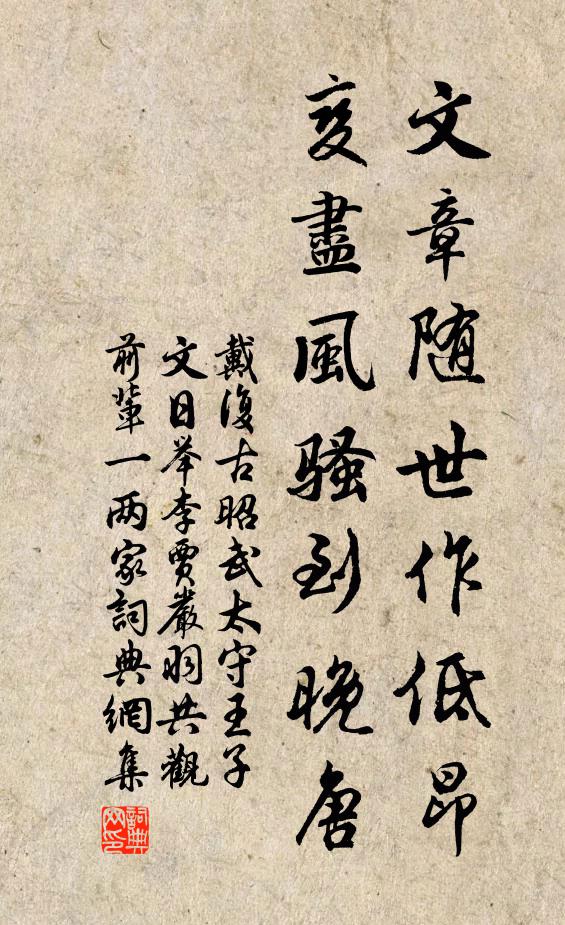 文章随世作低昂
变盡風騷到晚唐
戴復古昭武太守王子
文日举李賈嚴羽共觀
前輩一两家詞典網集
詞典网印